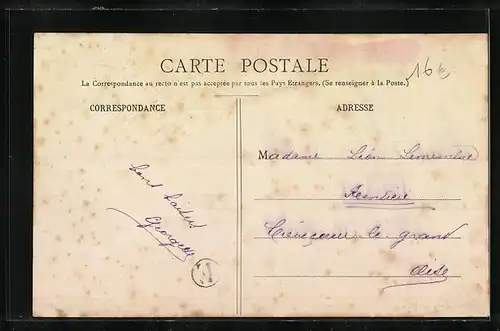 CARTE POSTALE
16€
La Correspondance au recto n'est pas acceptée par tous les Pays Etrangers. (Se renseigner à la Poste.)
CORRESPONDANCE
ADRESSE
Bons baisers
Georgette
Madame Léon
Rentière
Crèvecoeur le grand
Oise